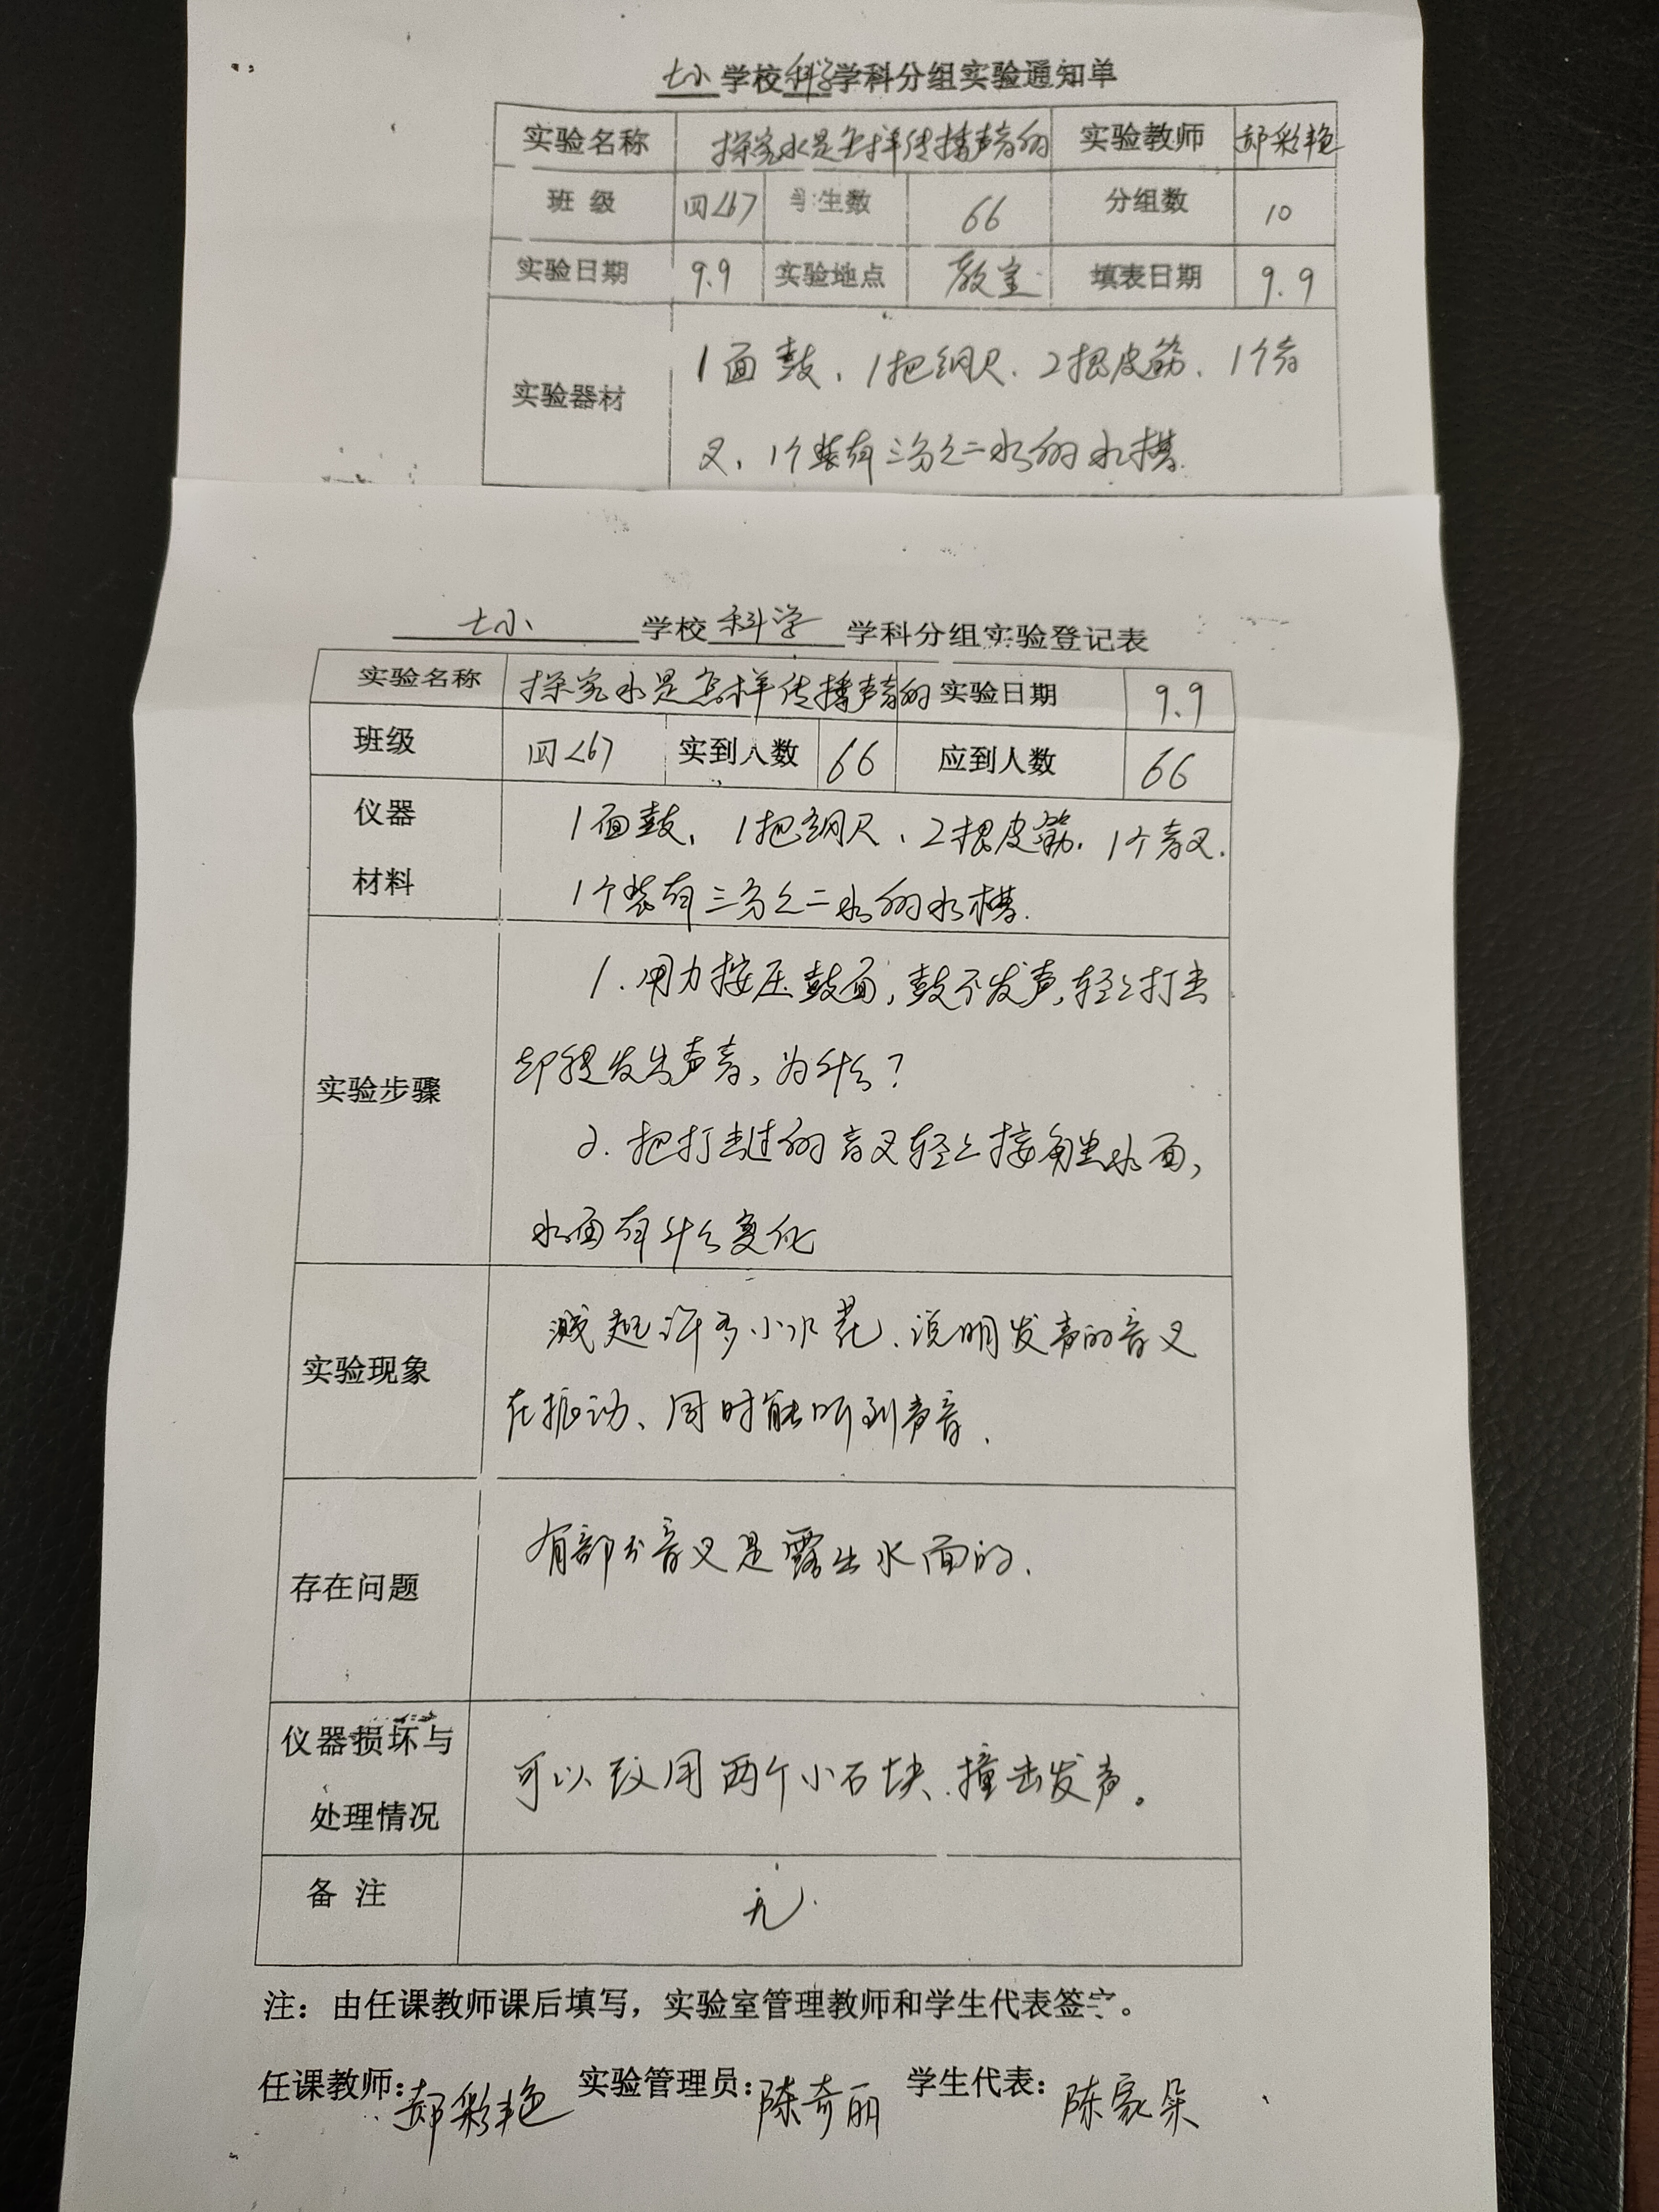 七小学校科学学科分组实验通知单
实验名称 探究水是怎样传播声音的 实验教师 郝彩艳
班 级 四<6> 学生数 66 分组数 10
实验日期 9.9 实验地点 教室 填表日期 9.9
1面鼓、1把钢尺、2根皮筋、1个音
实验器材
叉、1个装有三分之二水的水槽.
七小 学校 科学 学科分组实验登记表
实验名称 探究水是怎样传播声音的 实验日期 9.9
班级 四<6> 实到人数 66 应到人数 66
仪器 1面鼓、1把钢尺、2根皮筋、1个音叉.
材料 1个装有三分之二水的水槽.
1.用力按压鼓面,鼓不发声,轻轻打击
实验步骤 却能发出声音,为什么?
2.把打击过的音叉轻轻接触水面,
水面有什么变化
溅起许多小水花、说明发声的音叉
实验现象
在振动、同时能听到声音.
有部分音叉是露出水面的.
存在问题
仪器损坏与
可以改用两个小石块、撞击发声。
处理情况
备 注 无.
注：由任课教师课后填写，实验室管理教师和学生代表签字。
任课教师：郝彩艳 实验管理员：陈奇丽 学生代表：陈家朵